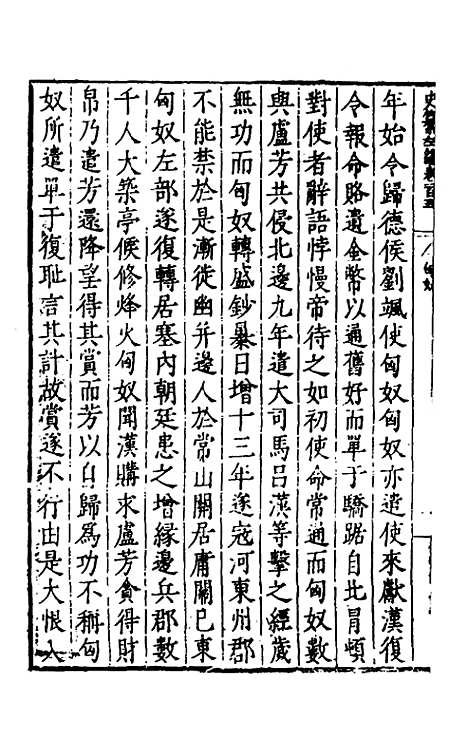 年始令歸德侯劉颯使匈奴匈奴亦遣使來獻漢復
令報命賂遺金幣以通舊好而單于驕踞自比冒頓
對使者辭語悖慢帝待之如初使命常通而匈奴數
與盧芳共侵北邊九年遣大司馬吕漢等擊之經歲
無功而匈奴轉盛鈔暴日增十三年遂寇河東州郡
不能禁於是漸徙幽并邊人於常山關居庸關已東
匈奴左部遂復轉居塞内朝廷患之增緣邊兵郡數
千人大築亭候修烽火匈奴聞漢購求盧芳貪得財
帛乃遣芳還降望得其賞而芳以自歸爲功不稱匈
奴所遣單于復耻言其計故賞遂不行由是大恨入